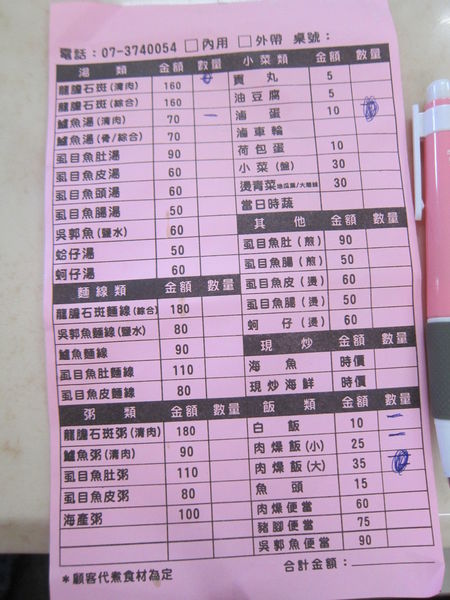 電話：07-3740054 □內用 □外帶 桌號：
湯類 金額 數量
龍膽石斑(清肉) 160
龍膽石斑(綜合) 160
鱸魚湯(清肉) 70 一
鱸魚湯(骨/綜合) 70
虱目魚肚湯 90
虱目魚皮湯 60
虱目魚頭湯 60
虱目魚腸湯 50
吳郭魚(鹽水) 60
蛤仔湯 50
蚵仔湯 60
麵線類 金額 數量
龍膽石斑麵線(綜合) 180
吳郭魚麵線(鹽水) 80
鱸魚麵線 90
虱目魚肚麵線 110
虱目魚皮麵線 80
粥類 金額 數量
龍膽石斑粥(清肉) 180
鱸魚粥(清肉) 90
虱目魚肚粥 110
虱目魚皮粥 80
海產粥 100
小菜類 金額 數量
貢丸 5
油豆腐 5
滷蛋 10
滷車輪
荷包蛋 10
小菜(盤) 30
燙青菜 30
當日時蔬
其他 金額 數量
虱目魚肚(煎) 90
虱目魚腸(煎) 50
虱目魚皮(燙) 60
虱目魚腸(燙) 50
蚵仔(燙) 60
現炒 金額 數量
海魚 時價
現炒海鮮 時價
飯類 金額 數量
白飯 10 一
肉燥飯(小) 25 一
肉燥飯(大) 35
魚頭 15
肉燥便當 60
豬腳便當 75
吳郭魚便當 90
合計金額：
*顧客代煮食材為定